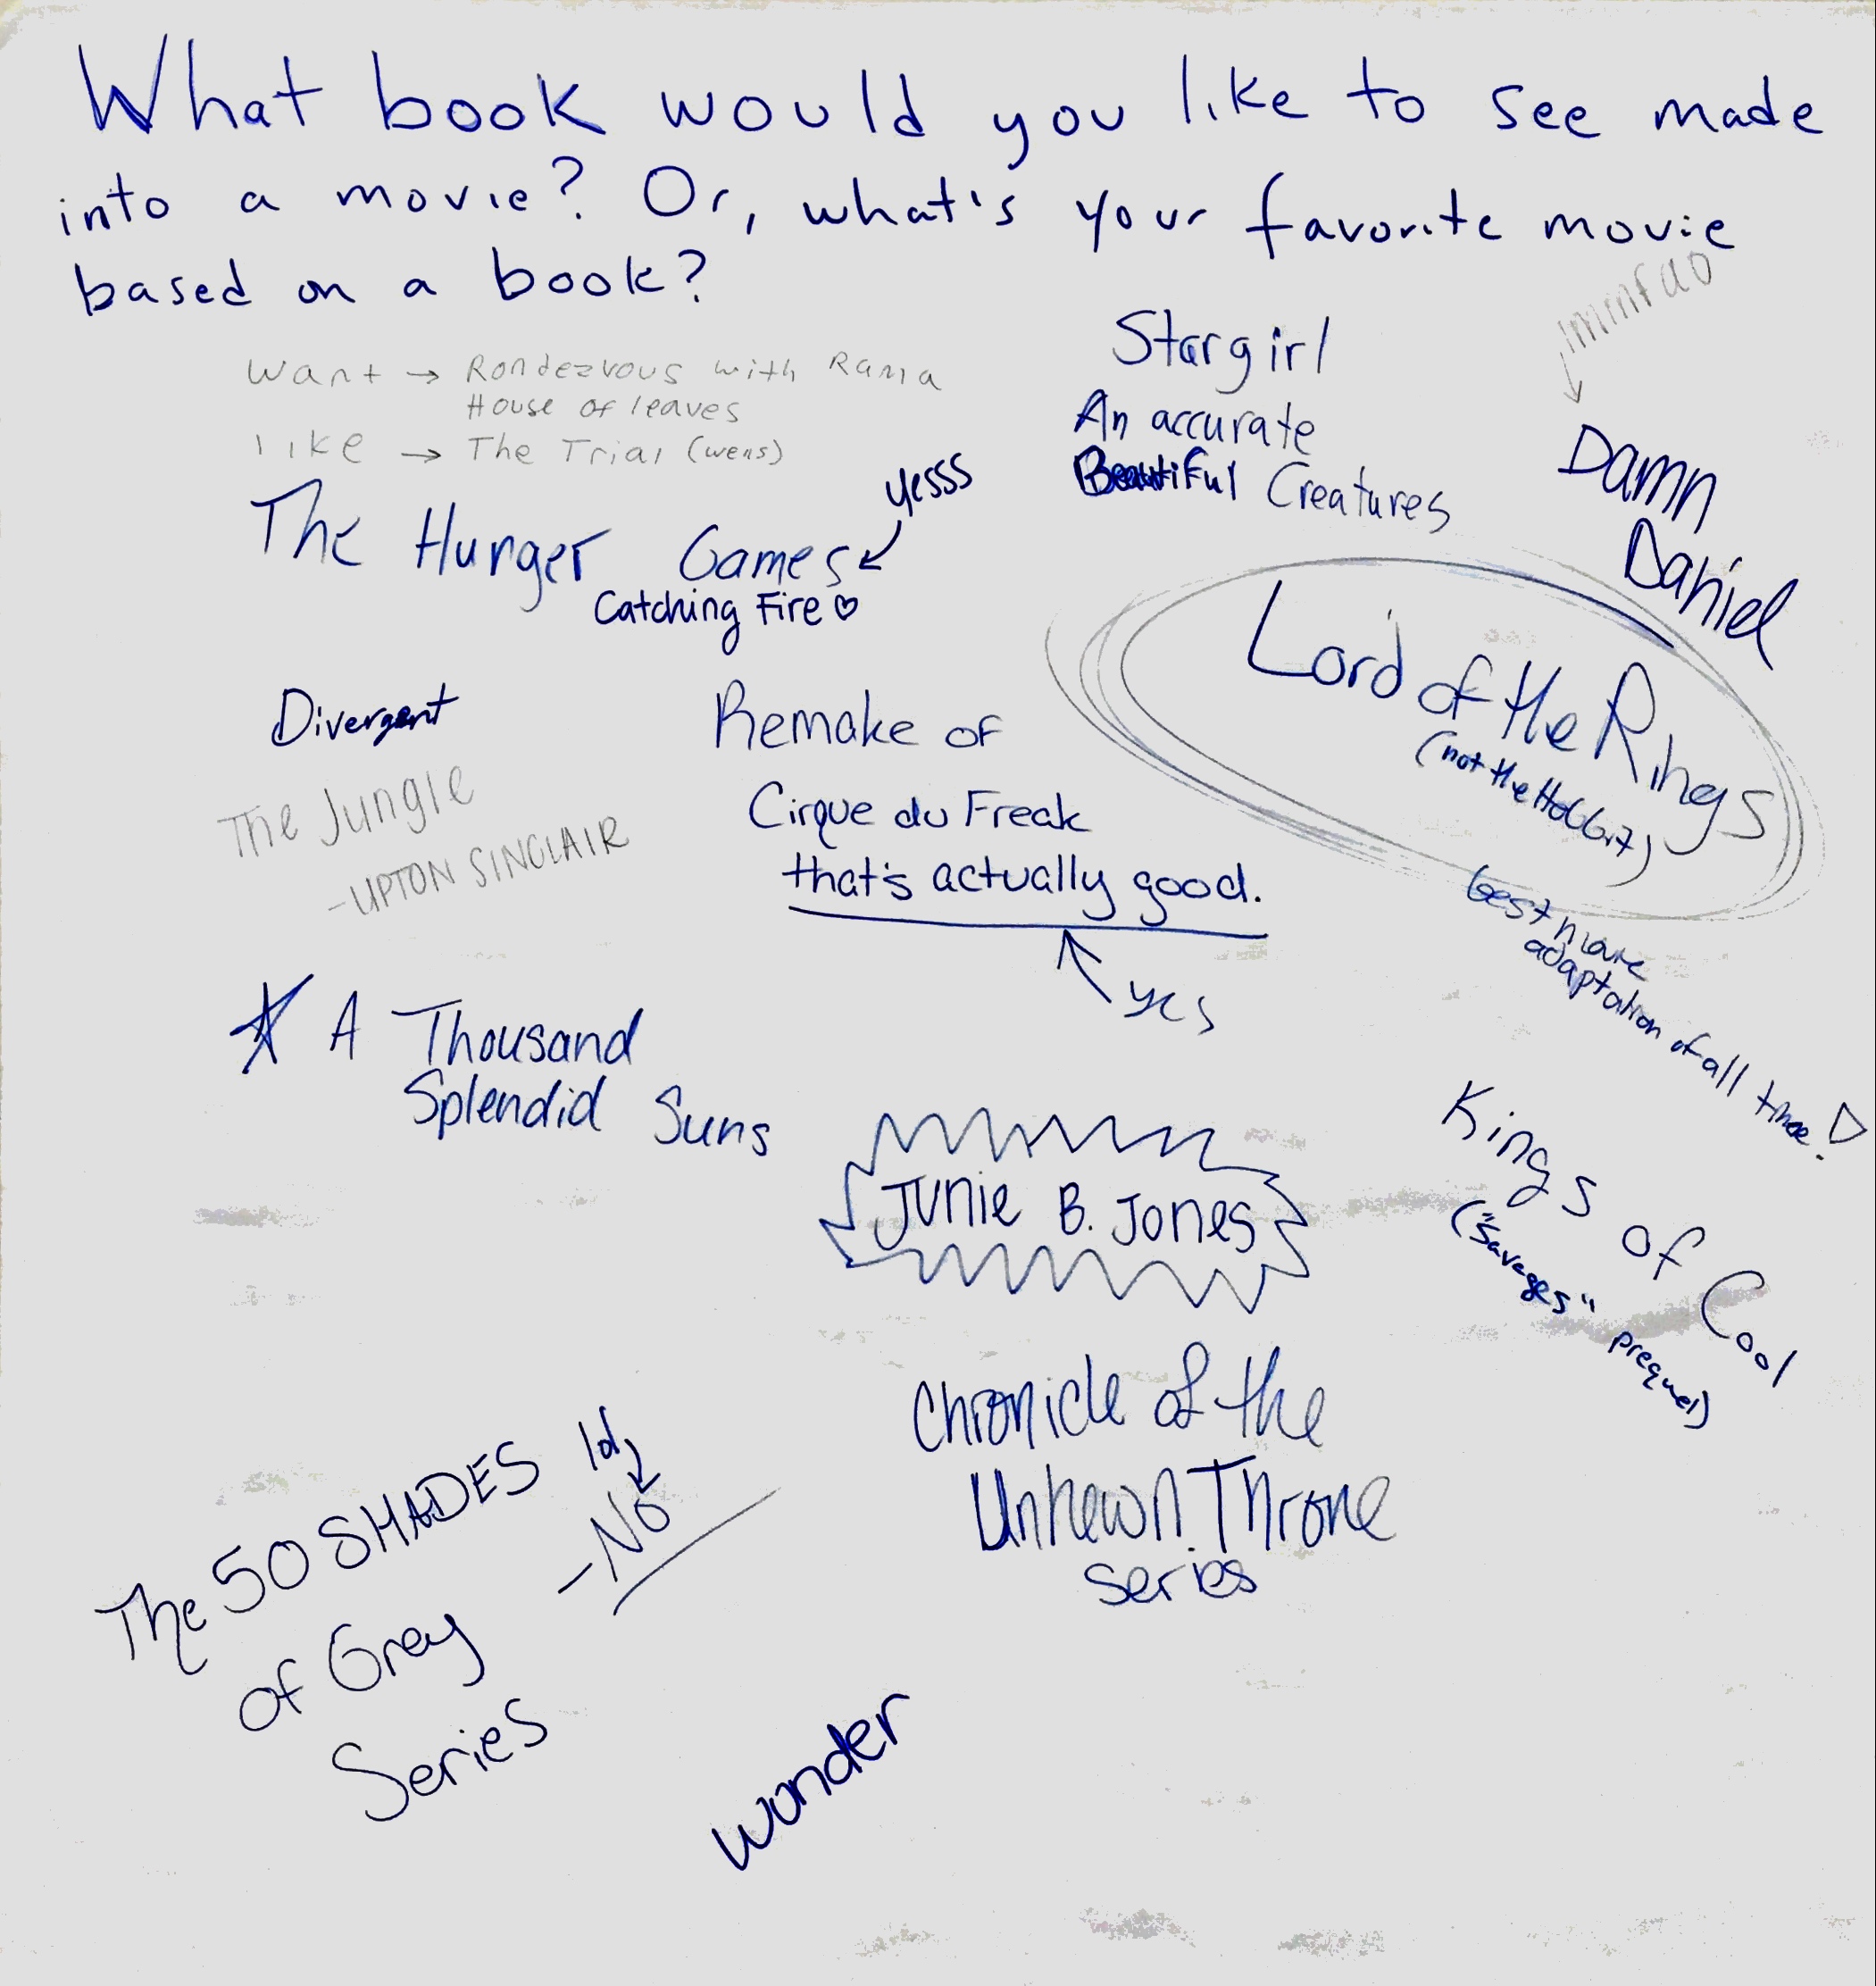 What book would you like to see made
into a movie? Or, what's your favorite movie
based on a book?
lmmfao
Want → Rondezvous with Rama
House of leaves
like → The Trial (wells)
Stargirl
An accurate
Beautiful Creatures
Damn
Daniel
yesss
The Hunger Games
Catching Fire ♡
Lord of the Rings
(not the Hobbit)
best movie
adaptation of all time!
Divergent
The Jungle
-UPTON SINCLAIR
Remake of
Cirque du Freak
that's actually good.
yes
A Thousand
Splendid Suns
Junie B. Jones
Kings of Cool
("Savages" prequel)
Chronicle of the
Unhewn Throne
series
The 50 SHADES
of Grey
Series
-No
wonder